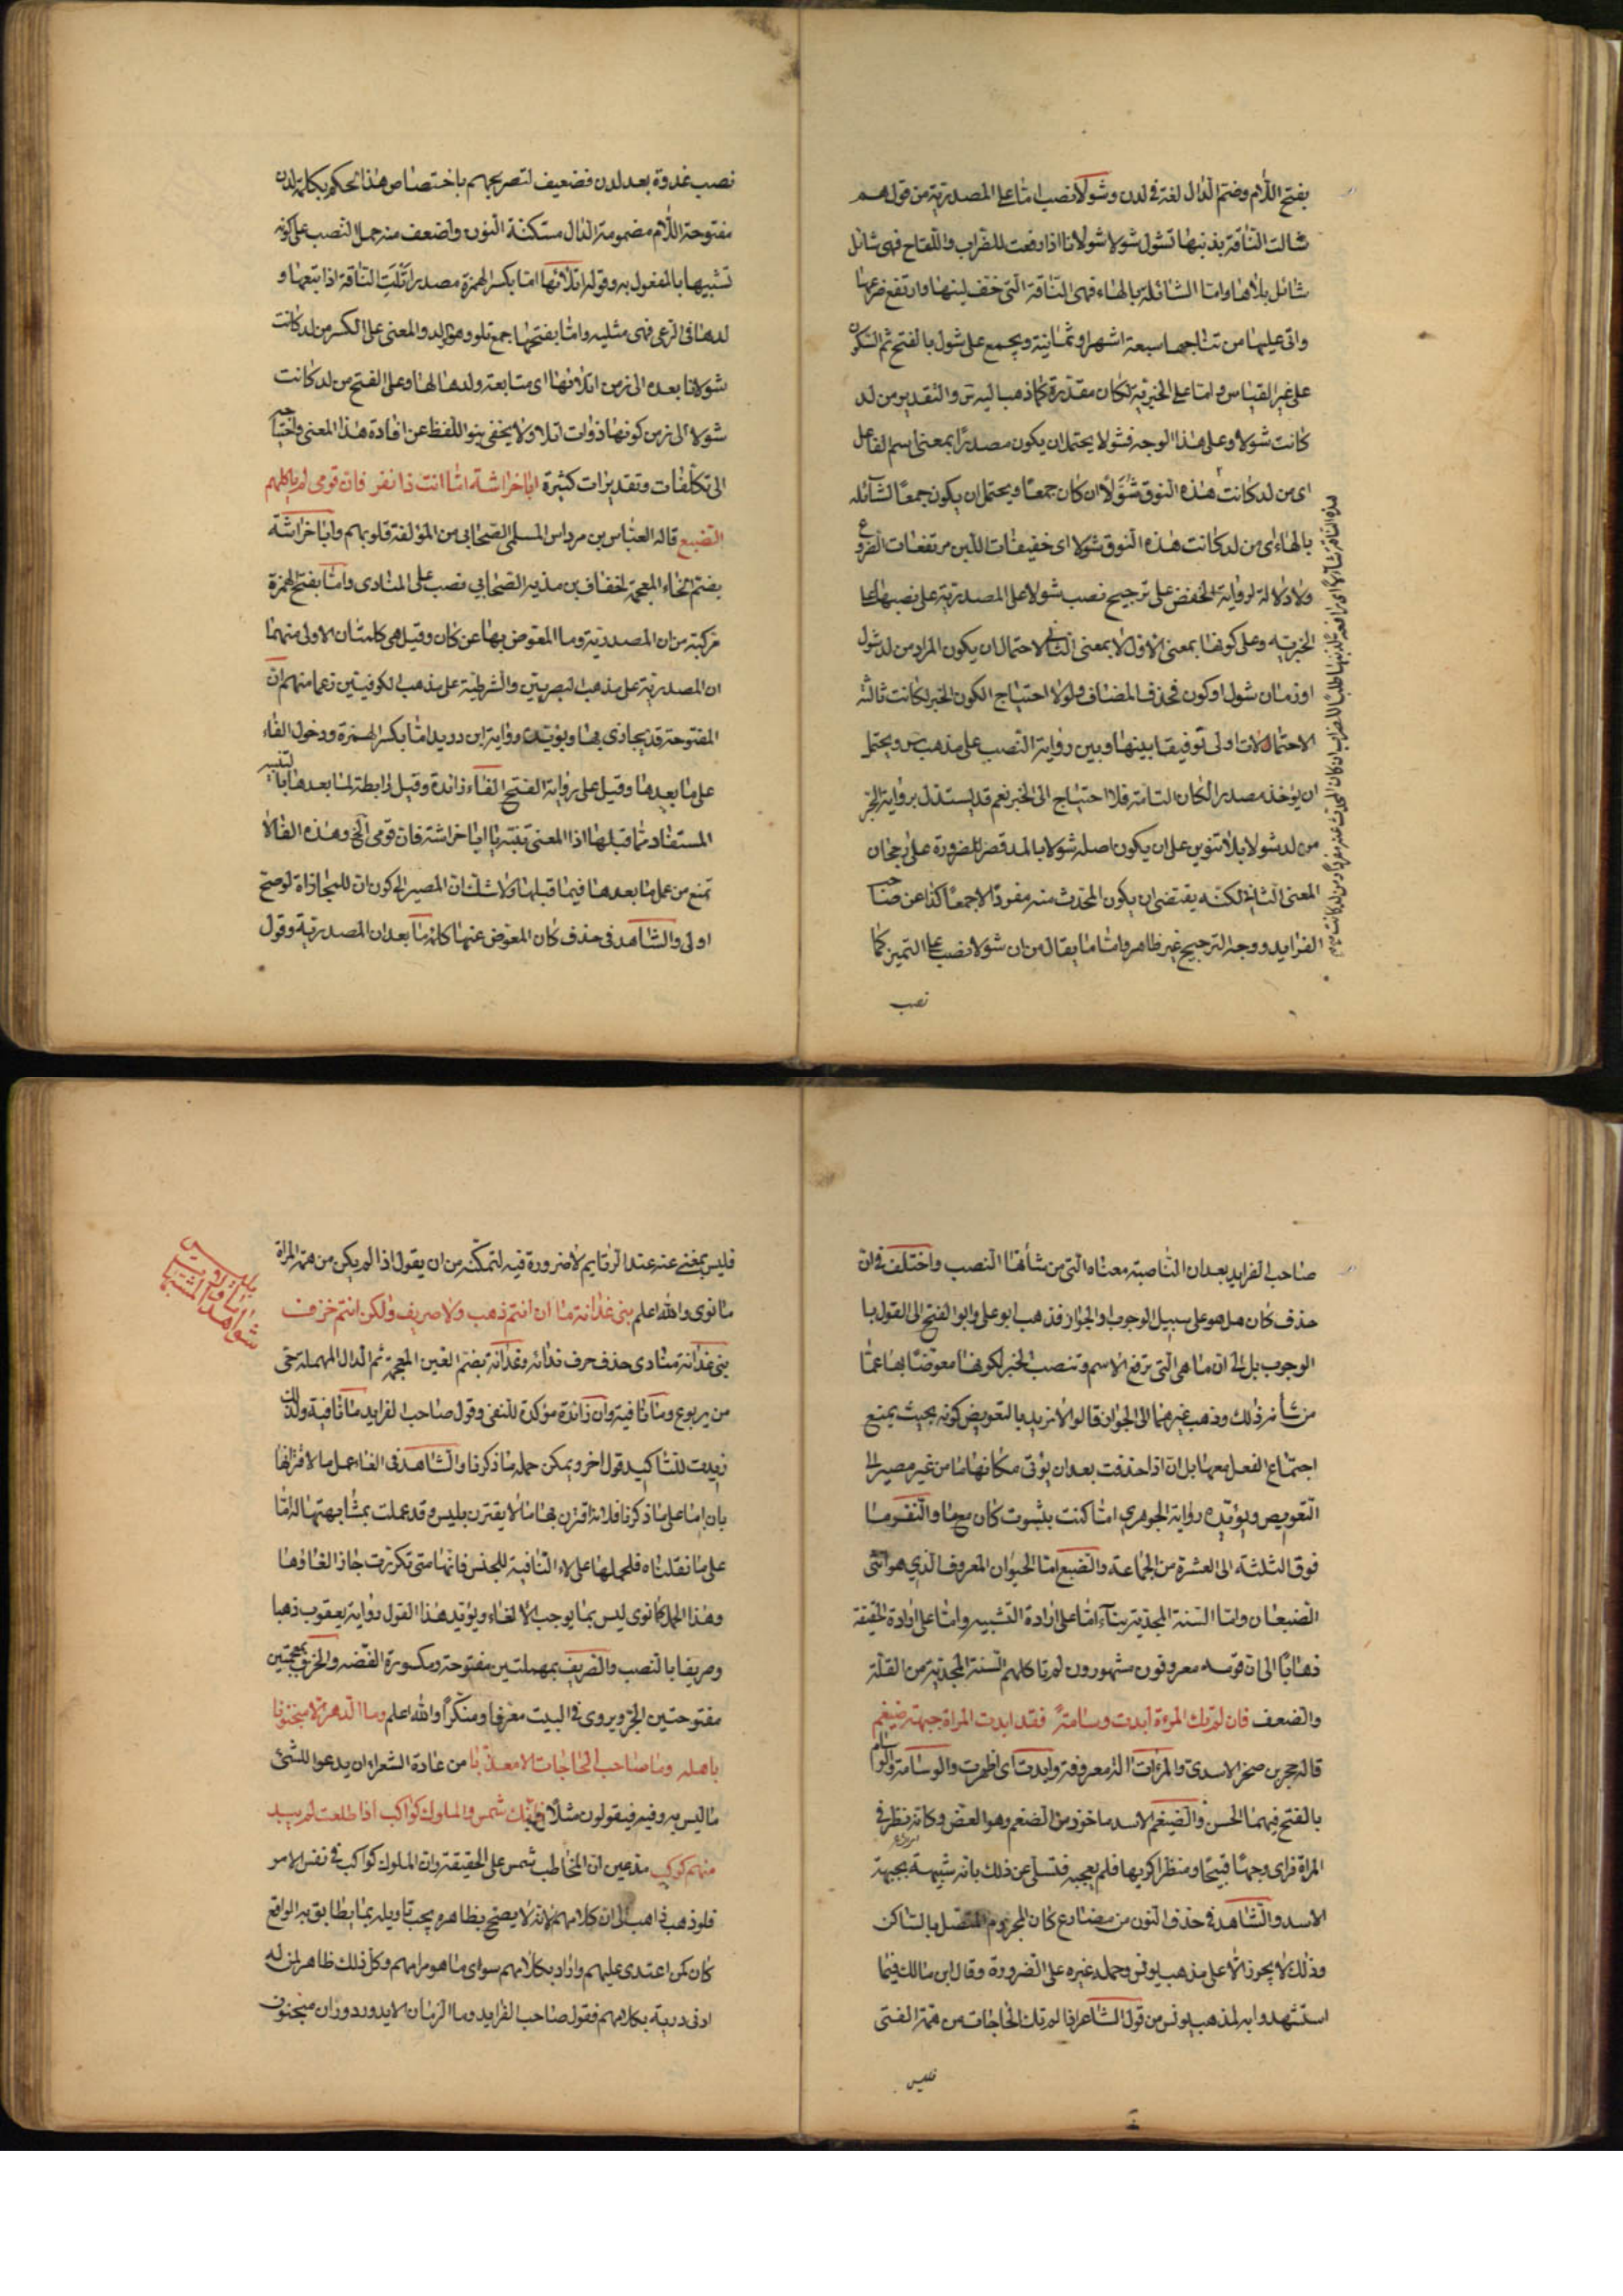 بفتح اللام وضم الدال لغة في لدن وشولا نصب اما على المصدرية من قولهم
شالت الناقة بذنبها تشول شولا وشولانا اذا رفعت للضراب واللقاح فهي شائل
شائل بلا هاء واما الشائلة بالهاء فهي الناقة التي خف لبنها وارتفع ضرعها
واتى عليها من نتاجها سبعة اشهر او ثمانية ويجمع على شول بالفتح ثم السكون
على غير القياس واما على الخبرية لكان مقدرة كما ذهب اليه س والتقدير من لد
كانت شولا وعلى هذا الوجه فشولا يحتمل ان يكون مصدرا بمعنى اسم الفاعل
اي من لد كانت هذه النوق شولا ان كان جمعا ويحتمل ان يكون جمعا لشائلة
بالهاء اي من لد كانت هذه النوق شولا اي خفيفات اللبن مرتفعات الضروع
ولا دلالة لرواية الخفض على ترجيح نصب شولا على المصدرية على نصبها على
الخبرية وعلى كونها بمعنى الاول لا بمعنى الثاني لاحتمال ان يكون المراد من لد شول
او زمان شول او كون فحذف المضاف ولولا احتياج الكون الخبر لكانت ثالثة
الاحتمالات اولى توفيقا بينها وبين رواية النصب على مذهب س ويحتمل
ان يؤخذ مصدرا لكان التامة فلا احتياج الى الخبر نعم قد يستدل برواية الجر
من لد شولا بلا تنوين على ان يكون اصله شولا بالمد قصر للضرورة على رجحان
المعنى الثاني لكنه يقتضي ان يكون المحدث منه مفردا لا جمعا كذا عن صاحب
الفرايد ووجه الترجيح غير ظاهر واما ما يقال من ان شولا نصب على التميز كما
نصب
نصب غدوة بعد لدن فضعيف لتصريحهم باختصاص هذا الحكم بكلمة لدن
مفتوحة اللام مضمومة الدال مستكنة النون واضعف منه جمل النصب على كونه
تشبيها بالمفعول به وقوله اتلائها اما بكسر الهمزة مصدر اتليت الناقة اذا تبعها و
لدها في الرعي فهي مثلية واما بفتحها جمع تلو وهو الولد والمعنى على الكسر من لد كانت
شولانا بعده الى زمن اتلائها اى متابعة ولدها لها وعلى الفتح من لد كانت
شولا الى زمن كونها ذوات اتلا ولا يخفى نبو اللفظ عن افادة هذا المعنى واحتياجه
الى تكلفات وتقديرات كثيرة ابا خراشة اما انت ذا نفر فان قومي لم ياكلهم
الضبع قاله العباس بن مرداس السلمي الصحابي من المؤلفة قلوبهم وابا خراشة
بضم الخاء المعجمة لخفاف بن الصحابي نصب على المنادى واما بفتح الهمزة
مركبة من ان المصدرية وما المعوض بها عن كان وقيل هي كلمتان الاولى منهما
ان المصدرية على مذهب البصريين والشرطية على مذهب الكوفيين زعما منهم ان
المفتوحة قد يجازى بها ويؤيده رواية ابن دريد اما بكسر الهمزة ودخول الفاء
على ما بعدها وقيل على رواية الفتح الفاء زائدة وقيل رابطة لما بعدها بالتنبيه
المستفاد مما قبلها اذا المعنى تنبه يا ابا خراشة فان قومي الخ وهذه الفاء لا
تمنع من عمل ما بعدها فيما قبلها ولا شك ان المصير الى كون ان للمجازاة لو صح
اولى والشاهد في حذف كان المعوض عنها كلمة ما بعد ان المصدرية وقول
صاحب الفرايد بعد ان الناصبة معناه التي من شانها النصب واختلف في ان
حذف كان هل هو على سبيل الوجوب او الجواز فذهب ابو علي وابو الفتح الى القول با
الوجوب بل الى ان ما هي التي ترفع الاسم وتنصب الخبر لكونها معوضا بها عما
من شأنه ذلك وذهب غيرهما الى الجواز قالوا لا نريد بالتعويض كونه بحيث يمتنع
اجتماع الفعل معها بل ان اذا حذفت بعد ان يؤتى مكانها ما من غير مصير الى
التعويض ويؤيده رواية الجوهري اما كنت بثبوت كان معها والنفر ما
فوق الثلثة الى العشرة من الجماعة والضبع اما الحيوان المعروف الذي هو انثى
الضبعان واما السنة المجدبة بناء اما على ارادة التشبيه واما على ارادة الحقيقة
ذهابا الى ان قومه معروفون مشهورون لم تاكلهم السنة المجدبة من القلة
والضعف فان لم تك المرءة ابدت وسامة فقد ابدت المراة جبهة ضيغم
قاله بن صخر الاسدي والمرءات الة معروفة وابدت اي اظهرت والوسامة والوسام
بالفتح فيهما الحسن والضيغم الاسد ماخوذ من الضغم وهو العض وكانه نظر في
المراة فراى وجها قبيحا ومنظرا كريها فلم يعجبه فتسلى عن ذلك بانه شبيهة بجبهة
الاسد والشاهد في حذف النون من مضارع كان المجزوم المتصل بالساكن
وذلك لا يجوز الا على مذهب يونس وحمله غيره على الضرورة وقال ابن مالك فيما
استشهدوا به لمذهب يونس من قول الشاعر اذا لم تك الحاجات من همة الفتى
فليس
فليس بمغن عنه عقد الرتايم لا ضرورة فيه لتمكنه من ان يقول اذا لم يكن من همة المراة
ما نوى والله اعلم بني غدانة ما ان انتم ذهب ولا صريف ولكن انتم خزف
بني غدانة منادى حذف حرف ندائه وغدانة بضم الغين المعجمة ثم الدال المهملة حي
من يربوع وما نافية وان زائدة مؤكدة للنفي وقول صاحب الفرايد ما نافية ولذلك
زيدت للتاكيد قول اخر ويمكن حمله ما ذكرنا والشاهد في الغاء عمل ما لاقترانها
بان اما على ما ذكرنا فلانه اقترن بها ما لا يقترن بليس وقد عملت بمشابهتها له اما
على ما نقلناه فلحملها على لاء النافية للجنس فانها متى تكررت جاز الغاؤها
وهذا الحمل كما نوى ليس بما يوجب الالغاء ويؤيد هذا القول رواية يعقوب ذهبا
وصريفا بالنصب والصريف بمهملتين مفتوحة ومكسورة الفضة والخزف بمعجمتين
مفتوحتين الجر ويروى في البيت معرفا ومنكرا والله اعلم وما الدهر الا منجنونا
باهله وما صاحب الحاجات الا معذبا من عادة الشعراء ان يدعوا للشئ
ما ليس به وفيه فيقولون مثلا فانك شمس والملوك كواكب اذا طلعت لم يبد
منهم كوكب مدعين ان المخاطب شمس على الحقيقة وان الملوك كواكب في نفس الامر
فلو ذهب ذاهب الى ان كلامهم لانه لا يصح بظاهره يجب تاويله بما يطابق به الواقع
كان كمن اعتدى عليهم واراد بكلامهم سوى ما هو مرامهم وكل ذلك ظاهر لمن له
ادنى دربة بكلامهم فقول صاحب الفرايد وما الزمان الا يدور دوران منجنون